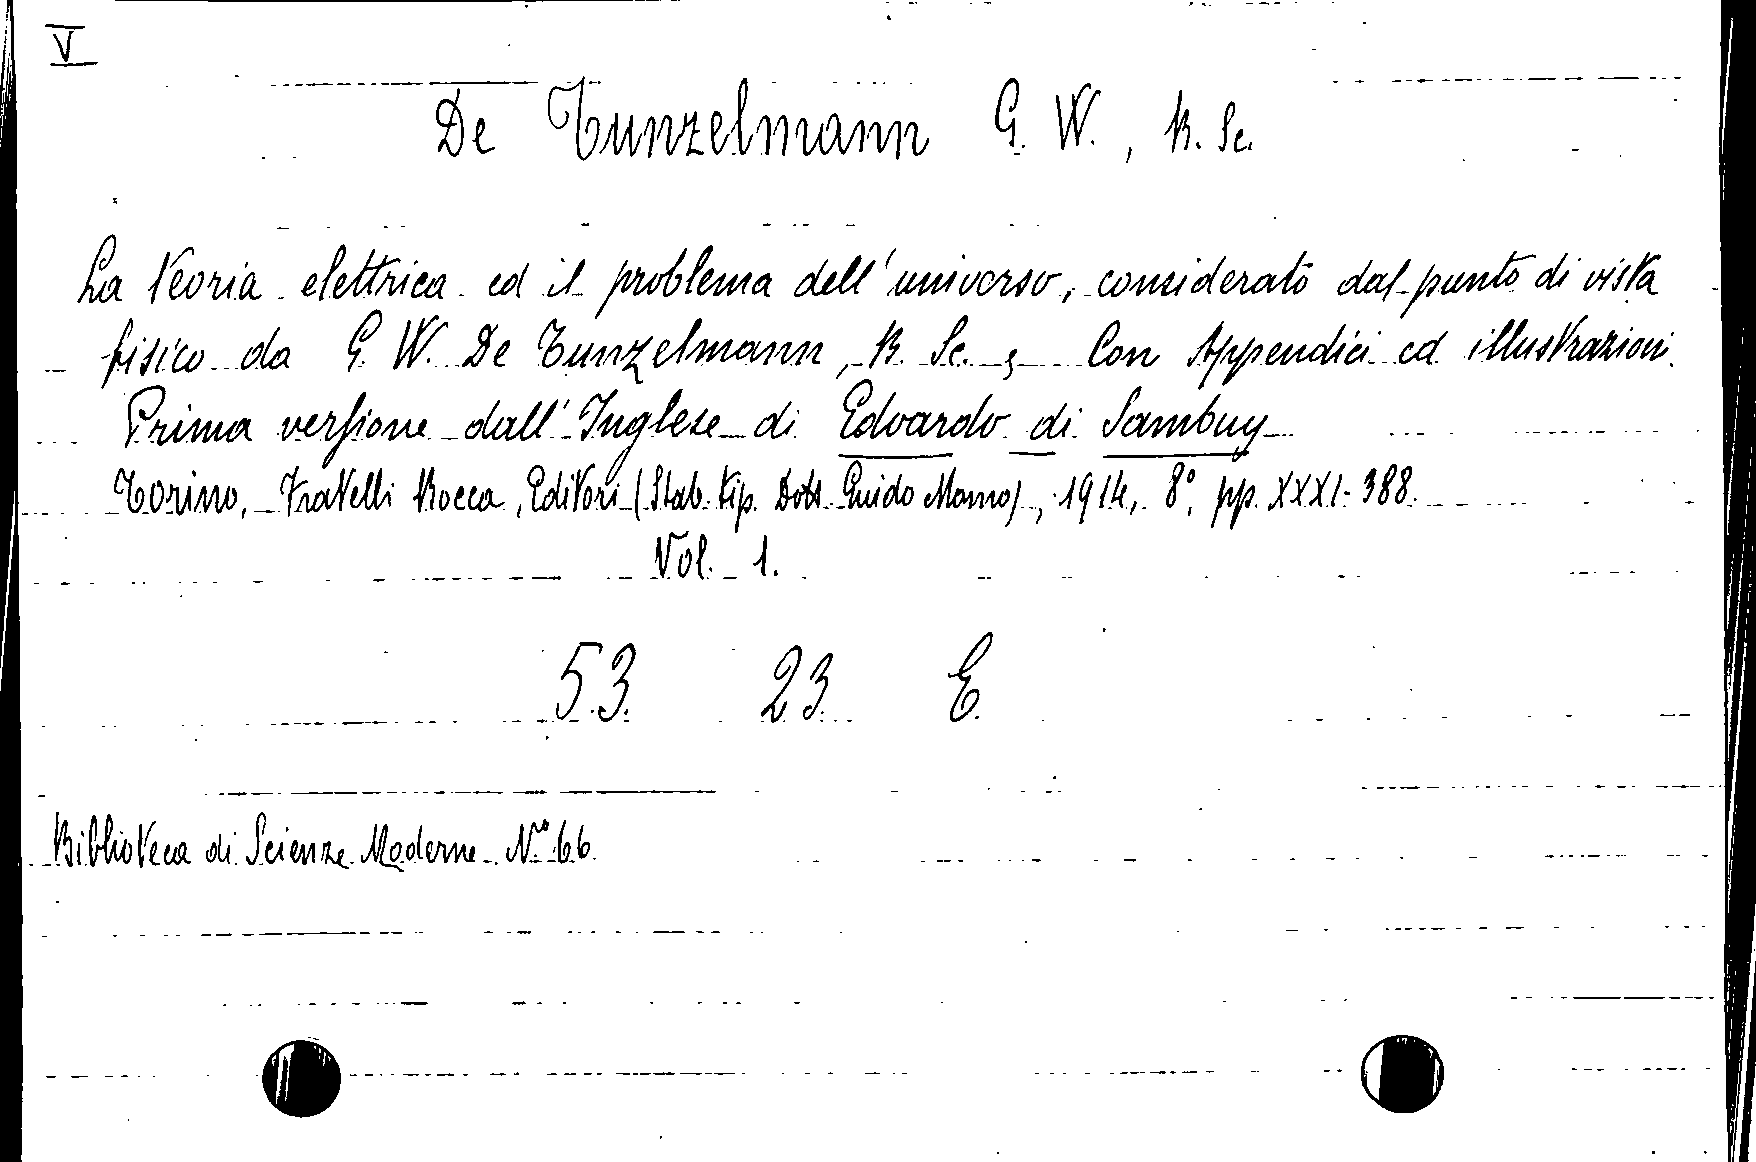 V
De Tunzelmann G. W., B. Sc.
La teoria elettrica ed il problema dell'universo, considerato dal punto di vista
fisico da G. W. De Tunzelmann, B. Sc., Con Appendici ed illustrazioni.
Prima versione dall'Inglese di Edoardo di Sambuy
Torino, Fratelli Bocca, Editori (Stab. Tip. Dott. Guido Momo), 1914, 8°, pp. XXXI-388.
Vol. 1.
53. 23. E.
Biblioteca di Scienze Moderne N.° 66.